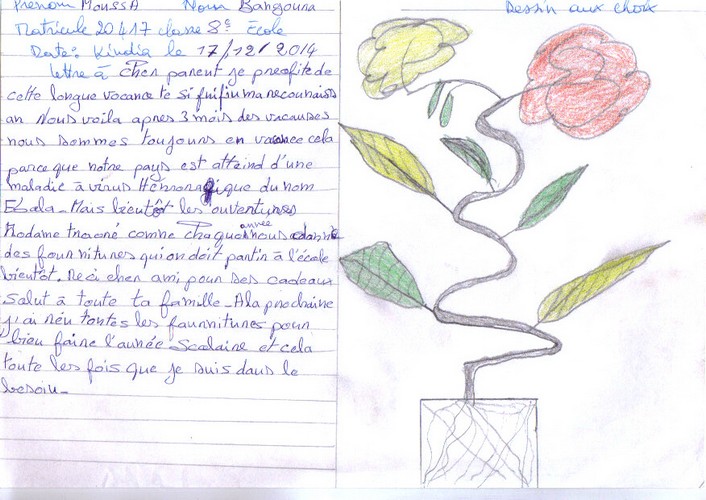 Prénom MoussA Nom Bangoura
Matricule 20417 classe 8e École
Date: Kindia le 17/12/2014
lettre à Cher parent je preofite de
cette longue vocance te si
an Nous voila apres 3 mois des vacauses
nous sommes toujours en vacance cela
parce que notre pays est atteind d'une
maladie à virus du nom
Ebola - Mais bientôt les ouventures
Madame traoré comme chaque année nous donne
des fournitures qui on doit partir à l'école
bientôt. Meci cher ami pour ses cadeaux
salut à toute ta famille - A la prochaine
j'ai réu toutes les faurnitures pour
bien faire l'année scolaire et cela
toute les fois que je suis dans le
besoin -
Dessin aux choix